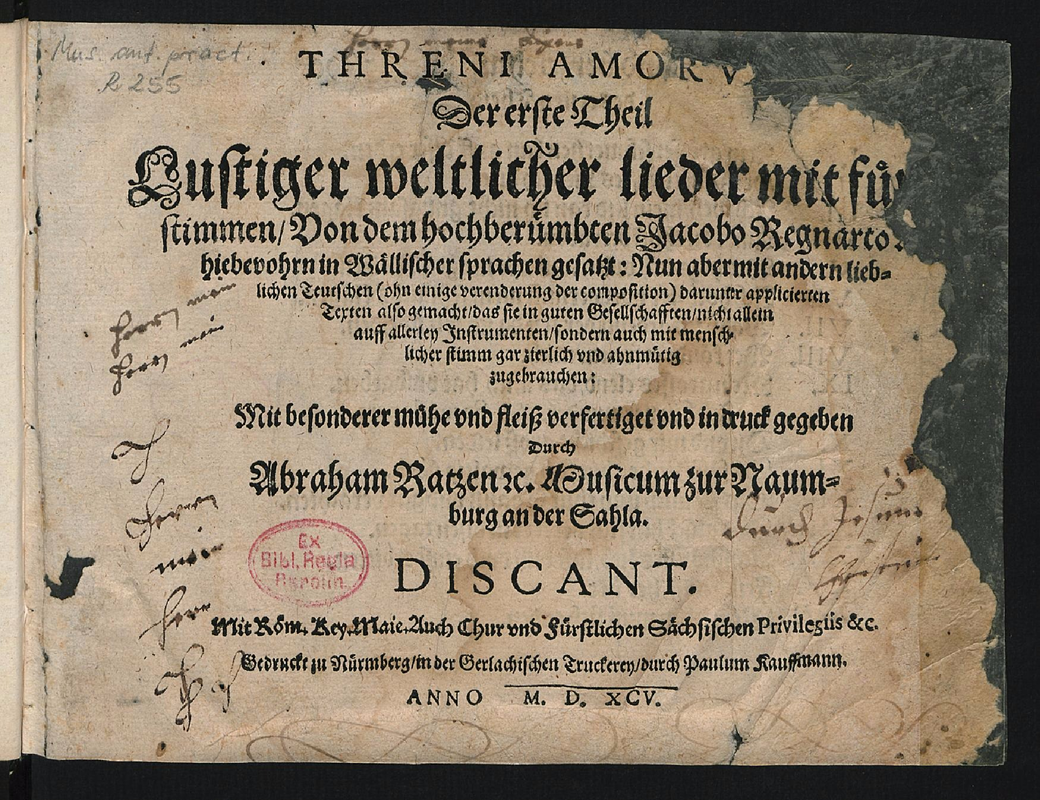 Mus. ant. pract.
R 255
THRENI AMORV
Der erste Theil
Lustiger weltlicher lieder mit fü
stimmen/ Von dem hochberümbten Jacobo Regnarto
hiebevohrn in Wällischer sprachen gesatzt: Nun aber mit andern lieb-
lichen Teutschen (ohn einige verenderung der composition) darunter applicierten
Texten also gemacht/ das sie in guten Gesellschafften/ nicht allein
auff allerley Instrumenten/ sondern auch mit mensch-
licher stimm gar zierlich vnd ahnmütig
zugebrauchen:
Mit besonderer mühe vnd fleiß verfertiget vnd in druck gegeben
Durch
Abraham Ratzen ꝛc. Musicum zur Naum-
burg an der Sahla.
Herr mein
Herr mein
Herr
mein
Herr
durch Jesum
Christum
Ex
Bibl. Regia
Berolin.
DISCANT.
Mit Röm. Key. Maie. Auch Chur vnd Fürstlichen Sächsischen Privilegiis &c.
Gedruckt zu Nürmberg/ in der Gerlachischen Truckerey/ durch Paulum Kauffmann.
ANNO M. D. XCV.